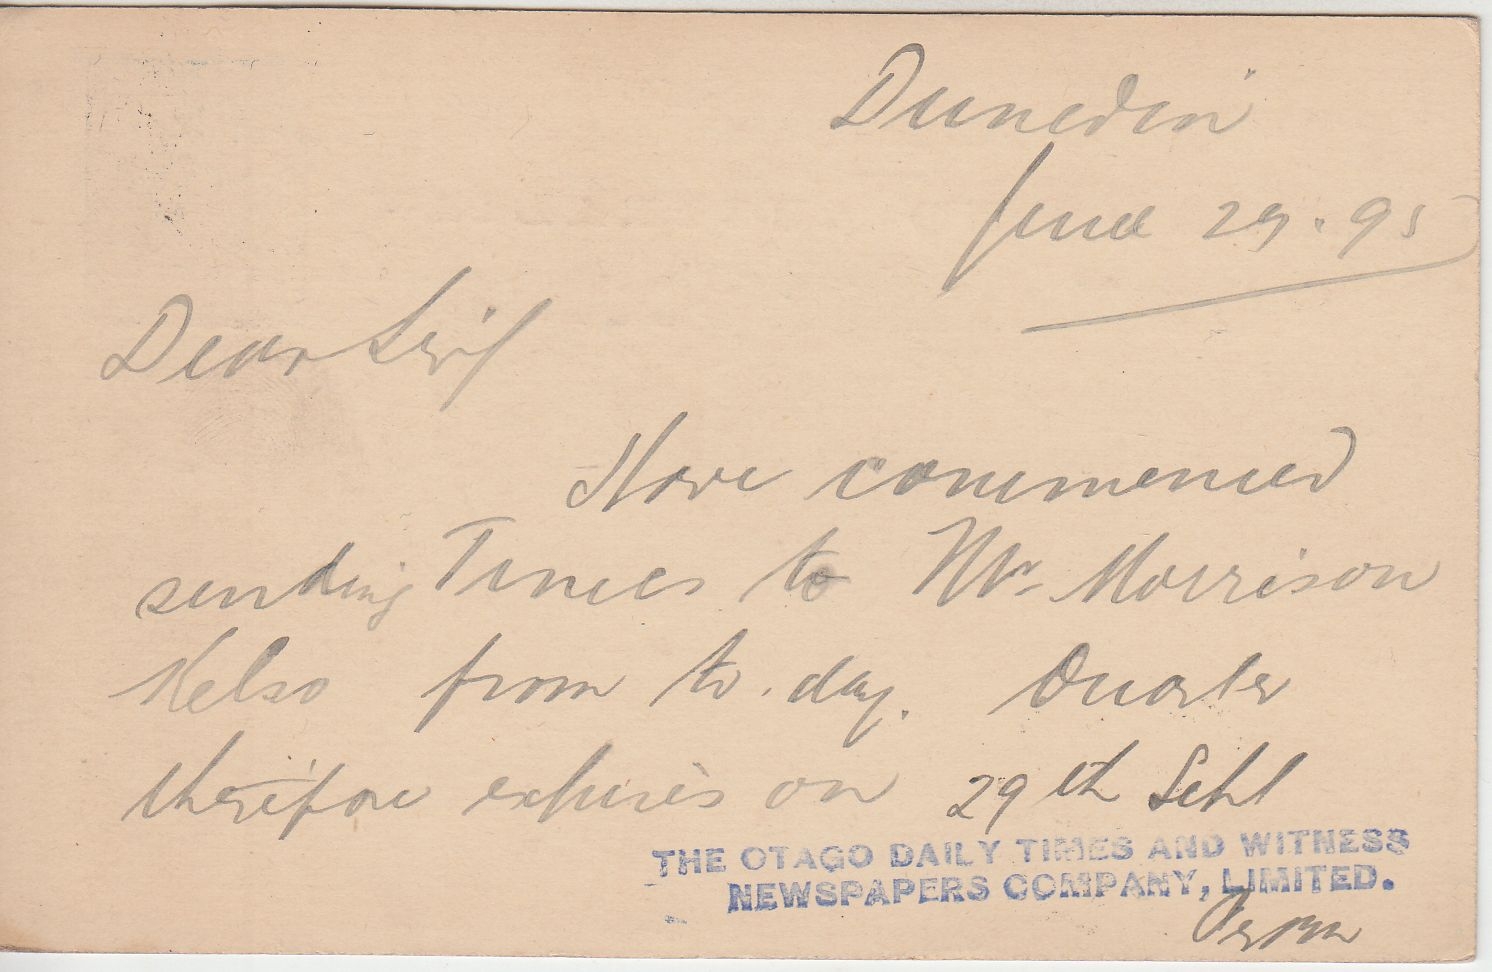 Dunedin
June 29. 95
Dear Sir/
Have commenced
sending Times to Mr Morrison
Kelso from to.day. Quarter
therefore expires on 29th Sept
THE OTAGO DAILY TIMES AND WITNESS
NEWSPAPERS COMPANY, LIMITED.
Per